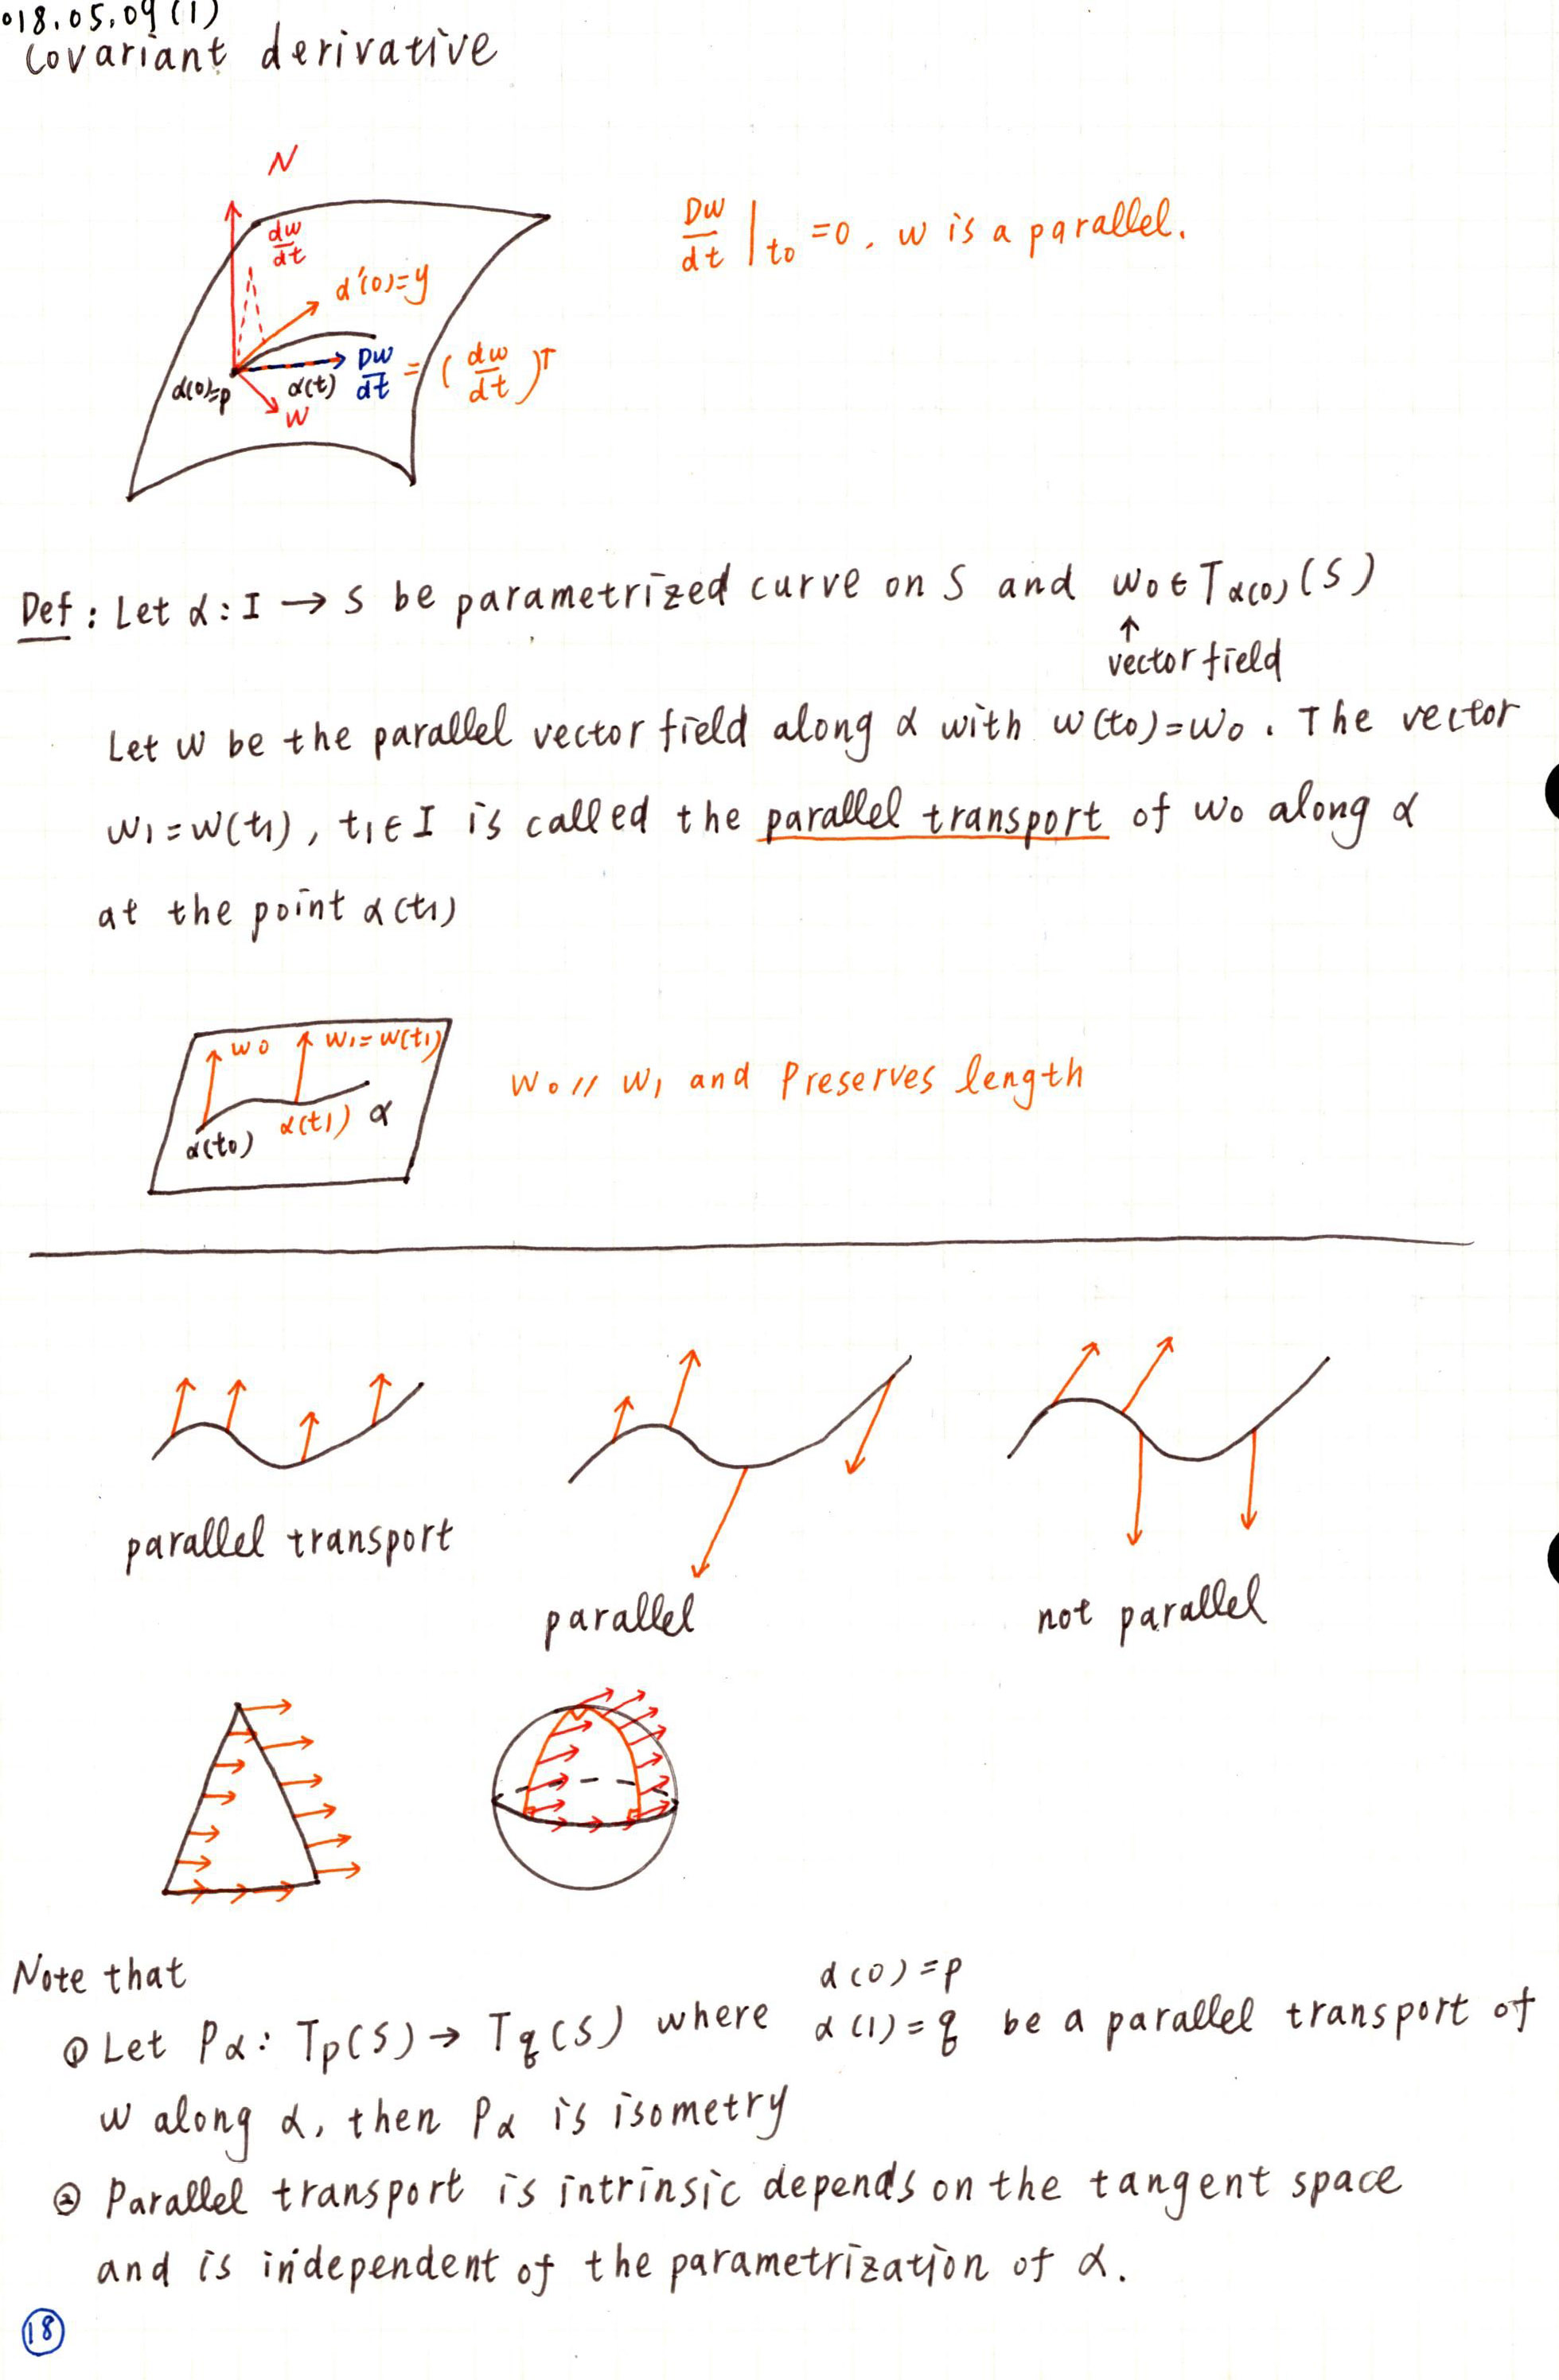 018.05.09(1)
Covariant derivative
N
dw/dt
α'(0)=y
Dw/dt = (dw/dt)ᵀ
α(0)=p
α(t)
w
Dw/dt |t₀ =0, w is a parallel.
Def: Let α: I → S be parametrized curve on S and w₀ ∈ Tα(0)(S)
↑
vector field
Let w be the parallel vector field along α with w(t₀)=w₀. The vector
w₁=w(t₁), t₁∈I is called the parallel transport of w₀ along α
at the point α(t₁)
w₀
w₁=w(t₁)
α(t₀)
α(t₁)
α
w₀ // w₁ and Preserves length
parallel transport
parallel
not parallel
Note that
α(0)=p
① Let Pα: Tp(S) → Tq(S) where α(1)=q be a parallel transport of
w along α, then Pα is isometry
② Parallel transport is intrinsic depends on the tangent space
and is independent of the parametrization of α.
18